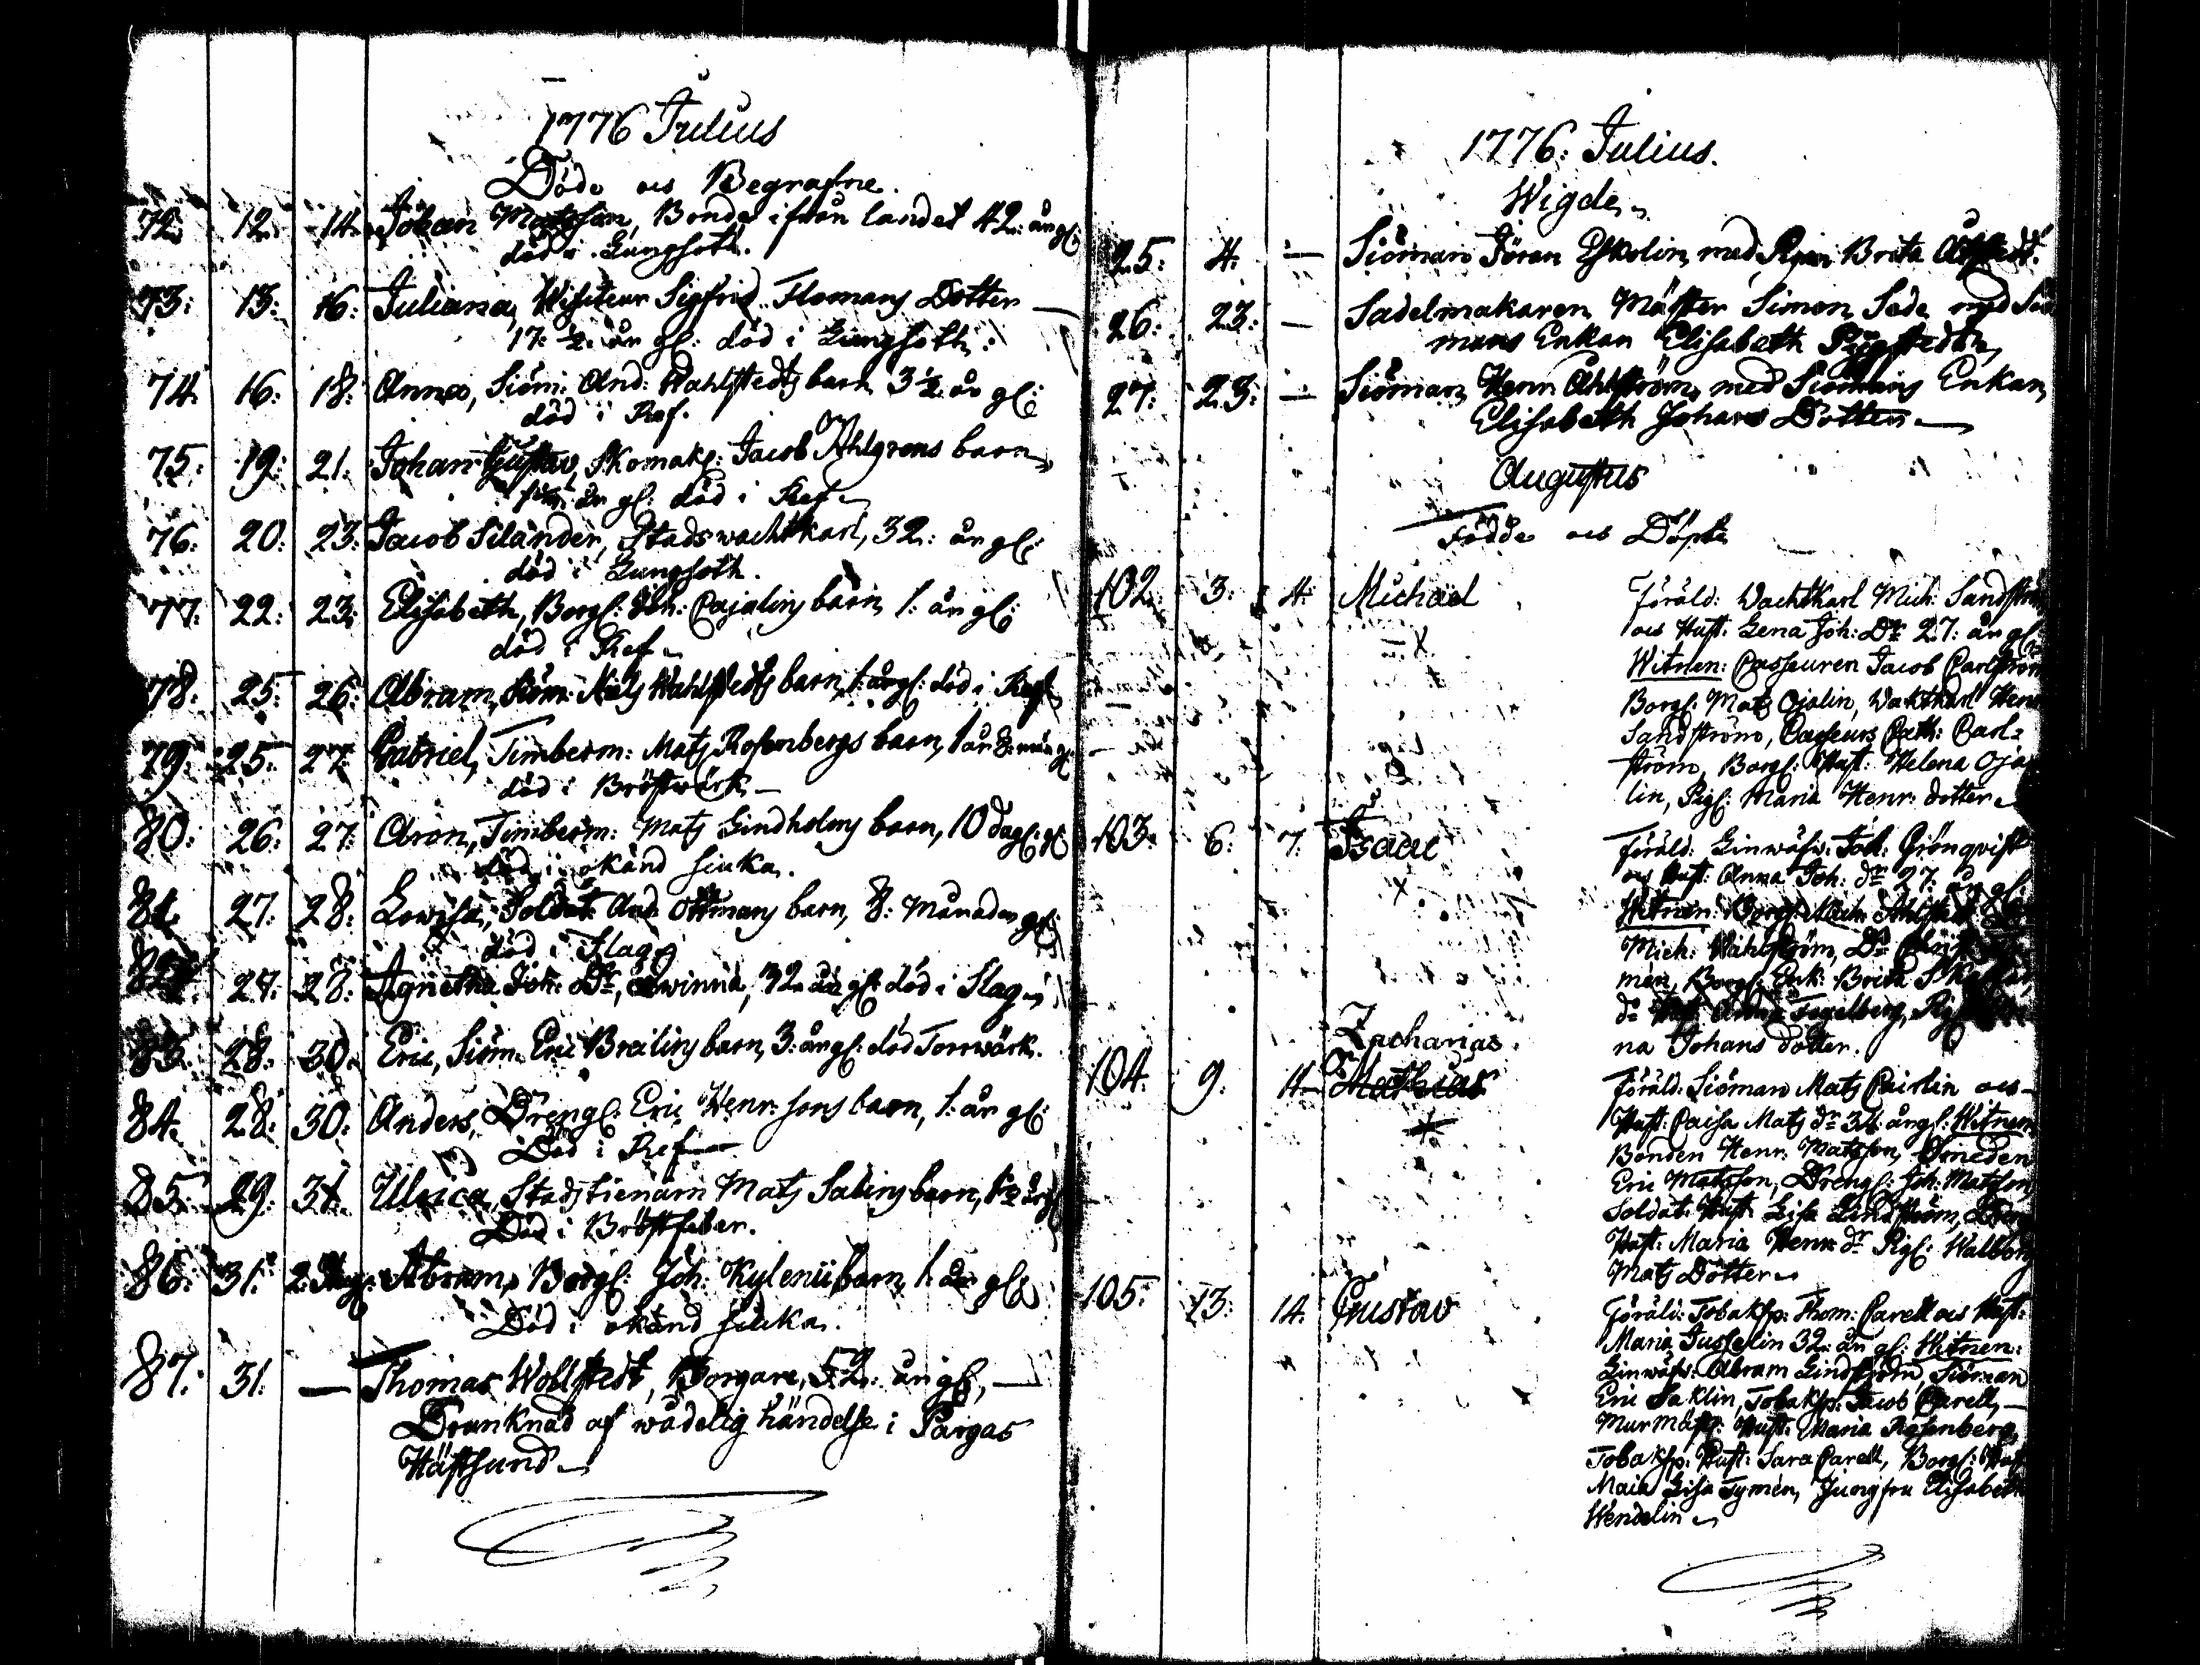 1776 Julius
Döde och Begrafne.
72. 12. 14. Johan Matsson, Bonde ifrån landet 42. år gl:
död i Lungsoth.
73: 13: 16: Juliana, Wisiteur Sigfrid Flomans Dotter
17: ½: år gl: död i Lungsoth:
74. 16. 18: Anna, Siöm: And: Wahlstedts barn 3 ½ år gl:
död i Ref.
75. 19: 21. Johan Gustav, Skomak: Jacob Ahlgrens barn
år gl: död i Ref
76: 20: 23: Jacob Selander, Stadswachtkarl, 32: år gl:
död i Lungsoth.
77. 22: 23: Elisabeth, Borgl: Joh: Cajalins barn 1: år gl:
död i Ref
78. 25: 26: Abram, Siöm: Mats Wahlstedts barn, 1: år gl: död i Ref
79: 25. 27. Gabriel, Timberm: Mats Rosenbergs barn, 1 år 8: mån gl:
död i Bröstwärk
80: 26: 27: Aron, Timberm: Mats Lindholms barn, 10 dag: gl:
död i okänd siuka.
81. 27. 28. Lowisa, Soldat: And: Ottmans barn, 8: Månader gl:
död i Slag
82. 27. 28: Agnetha Joh: Dr, qwinna, 32. år gl: död i Slag
83. 28. 30. Eric, Siöm. Eric Breilins barn, 3: år gl: död Torrwärk.
84. 28: 30: Anders, Drengl: Eric Henr: sons barn, 1: år gl:
Död i Ref
85. 29. 31. Ulrica, Stadstienarn Mats Salins barn, 1 ½ år gl
Död i Bröstfeber.
86: 31. 2. Aug: Abram, Borgl: Joh: Kylenii barn, 1. år gl:
Död i okänd siuka.
87. 31. — Thomas Wollstedt, Borgare, 52: år gl,
Drunknad af wådelig händelse i Pargas
Hästsund
1776: Julius.
Wigde
25: 4. — Siöman Jöran Eskolin, med Pigan Brita
26: 23: — Sadelmakaren Mäster Simon Sede med Siö
mans Enkan Elisabeth
27: 23: — Siöman Henr. Ahlström, med Siömans Enkan,
Elisabeth Johans Dotter
Augustus
Födde och Döpte
102. 3: 4. Michael
Föräld: Wachtkarl Mich: Sandström
och Hust: Lena Joh: Dr 27: år gl:
Witnen: Casseuren Jacob Carlström
Borgl: Mats Ojalin, Waktkarl Henr
Sandström, Casseurs Cath: Carl=
ström, Borgl: Hust: Helena Oja
lin, Pigl: Maria Henr: dotter
103. 6: 7. Isaac
Föräld: Linwäfw: Joh: Grönqvist
och Hust: Anna Joh: dr 27: år gl:
Witnen: Borgl: Mich: Ahlstedt
Mich: Wahlström, Dr
men, Borgl: Enk: Brita
dr Hust: Anna Fogelberg, Pig
na Johans dotter.
Zacharias.
104. 9. 11. Mathias
Föräld: Siöman Mats Pairlin och
Hust: Caisa Mats dr 34: år gl: Witnen
Bonden Henr. Matsson, Smeden
Eric Matsson, Drengl: Joh: Matsson,
Soldat: Hust: Lisa Lindström, Dreng
Hust: Maria Henr: dr Pigl: Walborg
Mats Dotter
105. 13: 14. Gustav
Föräld: Tobaksp: Thom: Carell och Hust:
Maria Juslelin 32: år gl: Witnen:
Linwäfw: Abram Lindström, Siöman
Eric Saklin, Tobaksp: Jacob Carell,
Murmäst: Hust: Maria Rosenberg,
Tobaksp: Hust: Sara Carell, Borgl: Hust
Maia Lisa Tymen, Jungfru Elisabeth
Wendelin